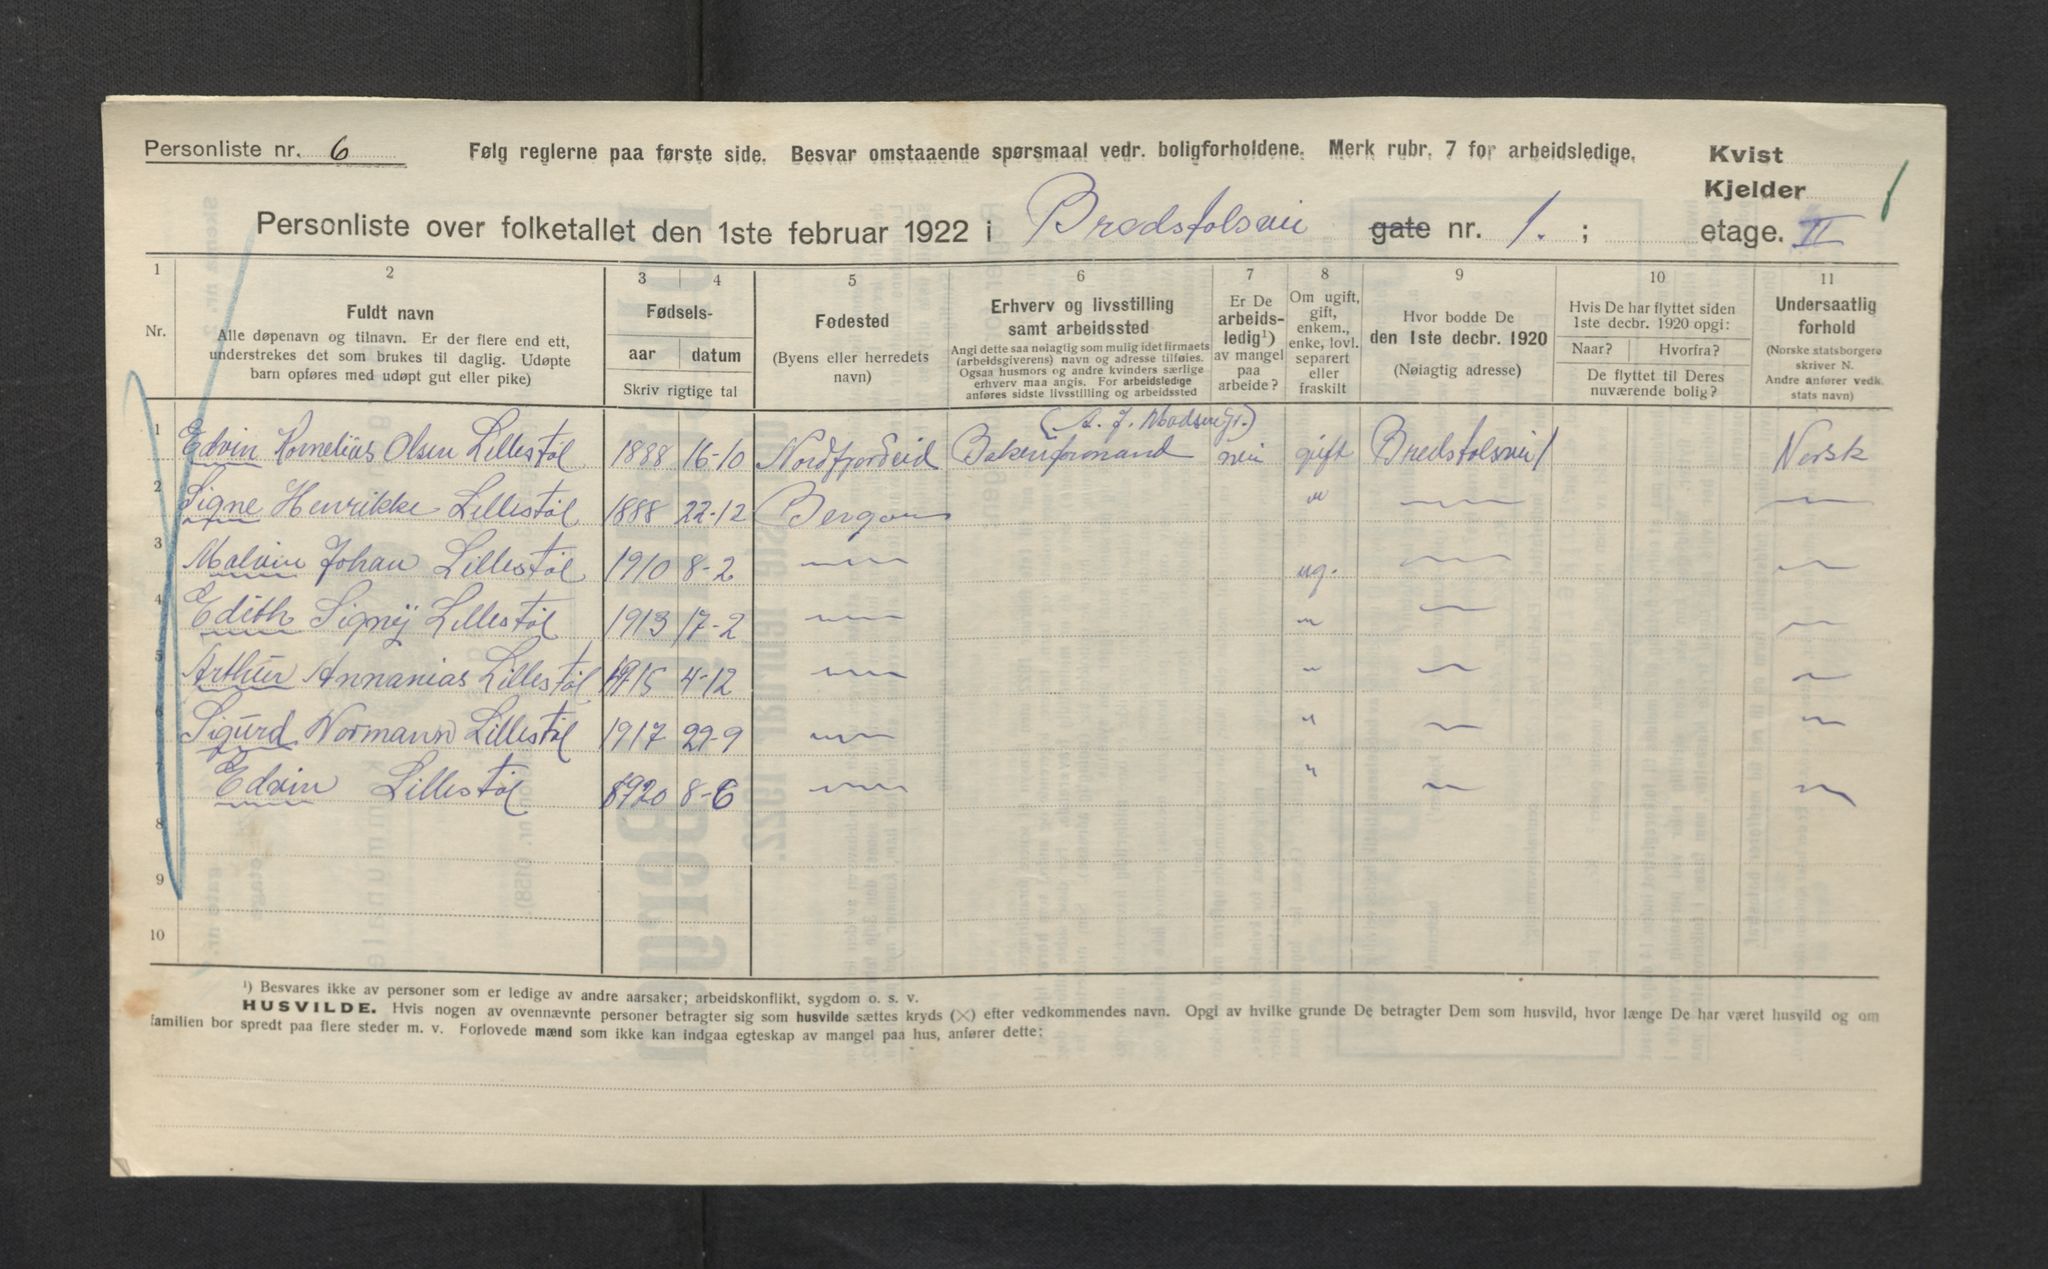 Personliste nr. 6 Følg reglerne paa første side. Besvar omstaaende spørsmaal vedr. boligforholdene. Merk rubr. 7 for arbeidsledige.
Kvist
Kjelder
Personliste over folketallet den 1ste februar 1922 i Bredstolsvei gate nr. 1. ; etage. II
1 2 3 4 5 6 7 8 9 10 11
Nr.
Fuldt navn
Alle døpenavn og tilnavn. Er der flere end ett,
understrekes det som brukes til daglig. Udøpte
barn opføres med udøpt gut eller pike)
Fødsels-
aar datum
Skriv rigtige tal
Fodested
(Byens eller herredets
navn)
Erhverv og livsstilling
samt arbeidssted
Angi dette saa nøiaglig som mulig idet firmaets
(arbeidsgiverens) navn og adresse tilføies.
Ogsaa husmors og andre kvinders særlige
erhverv maa angis. For arbeidsledige
anføres sidste livsstilling og arbeidssted
Er De
arbeids-
ledig¹)
av mangel
paa
arbeide?
Om ugift,
gift,
enkem.,
enke, lovl.
separert
eller
fraskilt
Hvor bodde De
den 1ste decbr. 1920
(Nøiagtig adresse)
Hvis De har flyttet siden
1ste decbr. 1920 opgi:
Naar? Hvorfra?
De flyttet til Deres
nuværende bolig?
Undersaatlig
forhold
(Norske statsborgere
skriver N.
Andre anfører vedk.
stats navn)
(A. J. Madsen Jr.)
1 Edvin Kornelius Olsen Lillestöl 1888 16-10 Nordfjordeid Bakeriformand nei gift Bredstolsvei 1 Norsk
2 Signe Henrikke Lillestöl 1888 22-12 Bergen "
3 Malvin Johan Lillestöl 1910 8-2 ug.
4 Edith Signy Lillestöl 1913 17-2 "
5 Arthur Annanias Lillestöl 1915 4-12 "
6 Sigurd Normann Lillestöl 1917 29-9 "
7 Edvin Lillestöl 1920 8-6 "
8
9
10
¹) Besvares ikke av personer som er ledige av andre aarsaker; arbeidskonflikt, sygdom o. s. v.
HUSVILDE. Hvis nogen av ovennævnte personer betragter sig som husvilde sættes kryds (×) efter vedkommendes navn. Opgi av hvilke grunde De betragter Dem som husvild, hvor længe De har været husvild og om
familien bor spredt paa flere steder m. v. Forlovede mænd som ikke kan indgaa egteskap av mangel paa hus, anfører dette: